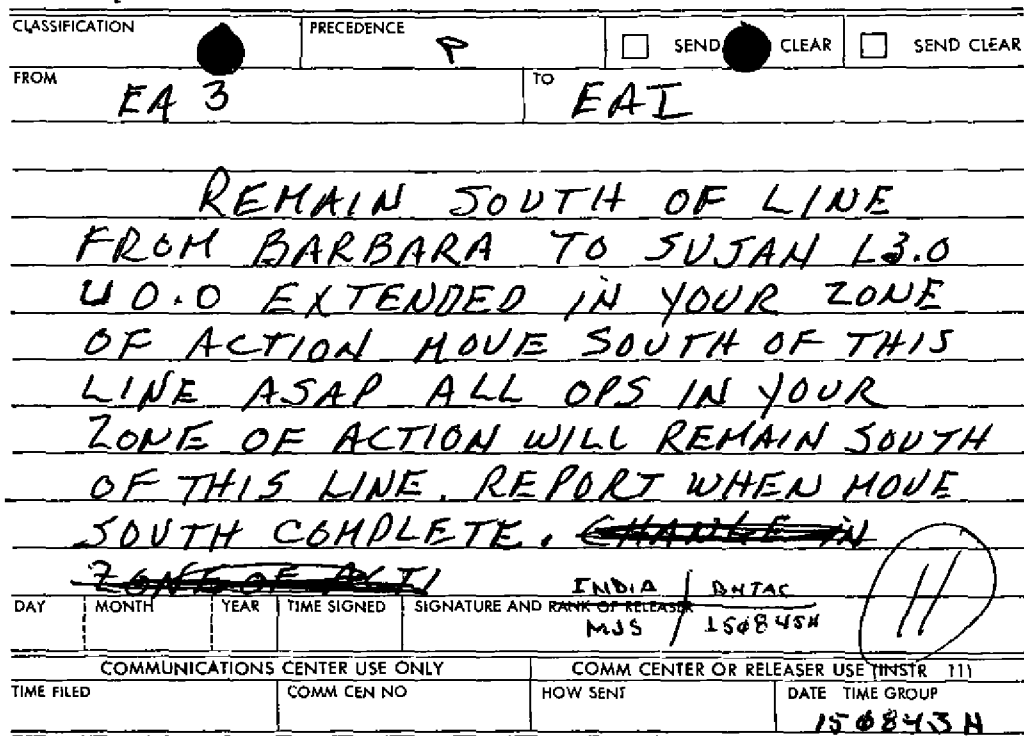 CLASSIFICATION PRECEDENCE P SEND CLEAR SEND CLEAR
FROM EA 3 TO EAI
REMAIN SOUTH OF LINE
FROM BARBARA TO SUSAN L3.0
U0.0 EXTENDED IN YOUR ZONE
OF ACTION MOVE SOUTH OF THIS
LINE ASAP ALL OPS IN YOUR
ZONE OF ACTION WILL REMAIN SOUTH
OF THIS LINE. REPORT WHEN MOVE
SOUTH COMPLETE. CHANGE IN
ZONE OF ACTI
DAY MONTH YEAR TIME SIGNED SIGNATURE AND RANK OF RELEASER
INDIA / BHTAC
MJS / 150845H
H
COMMUNICATIONS CENTER USE ONLY COMM CENTER OR RELEASER USE (INSTR 11)
TIME FILED COMM CEN NO HOW SENT DATE TIME GROUP
150843H